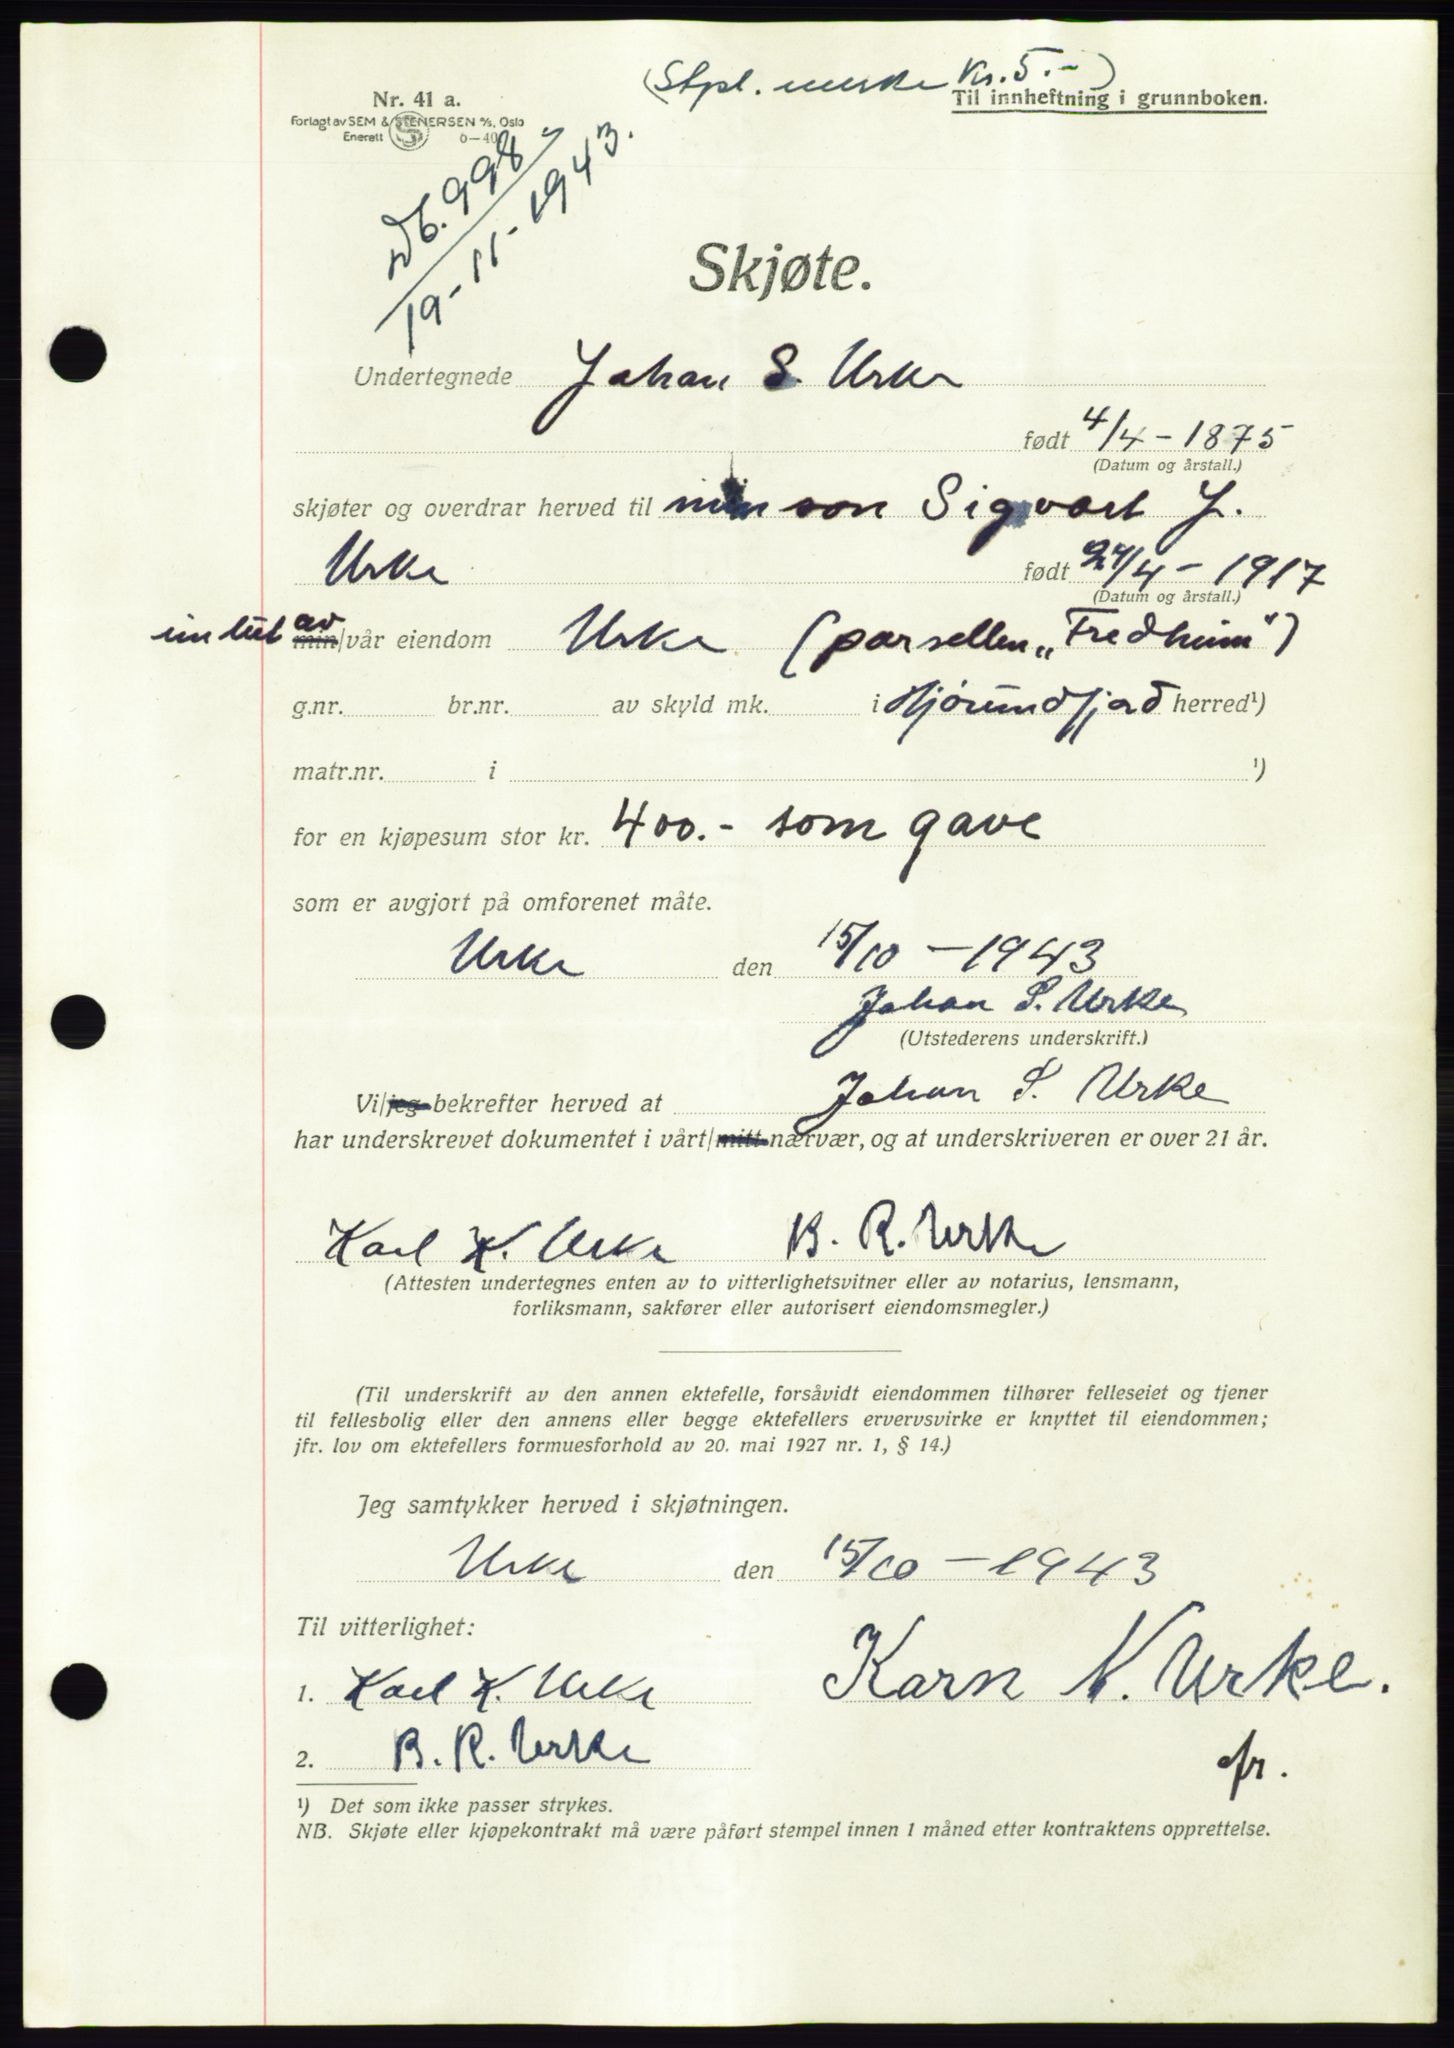 (Stpl. merke Kr. 5.-)
Nr. 41 a.
Til innheftning i grunnboken.
Forlagt av SEM & STENERSEN A/S, Oslo
Enerett S 6—40
Db. 998
19-11-1943.
Skjøte.
Undertegnede Johan S. Urke
født 4/4 - 1875
(Datum og årstall.)
skjøter og overdrar herved til min son Sigvart J.
Urke født 24/4 - 1917
(Datum og årstall.)
ein lut av min/vår eiendom Urke (parsellen „Fredheim")
g.nr. br.nr. av skyld mk. i Hjørundfjord herred¹)
matr.nr. i ¹)
for en kjøpesum stor kr. 400.- som gave
som er avgjort på omforenet måte.
Urke den 15/10 - 1943
Johan S. Urke
(Utstederens underskrift.)
Vi/jeg bekrefter herved at Johan S. Urke
har underskrevet dokumentet i vårt/mitt nærvær, og at underskriveren er over 21 år.
Karl K. Urke B. R. Urke
(Attesten undertegnes enten av to vitterlighetsvitner eller av notarius, lensmann,
forliksmann, sakfører eller autorisert eiendomsmegler.)
(Til underskrift av den annen ektefelle, forsåvidt eiendommen tilhører felleseiet og tjener
til fellesbolig eller den annens eller begge ektefellers ervervsvirke er knyttet til eiendommen;
jfr. lov om ektefellers formuesforhold av 20. mai 1927 nr. 1, § 14.)
Jeg samtykker herved i skjøtningen.
Urke den 15/10 - 1943
Til vitterlighet:
Karn N. Urke.
1. Karl K. Urke
2. B. R. Urke
¹) Det som ikke passer strykes.
NB. Skjøte eller kjøpekontrakt må være påført stempel innen 1 måned etter kontraktens opprettelse.